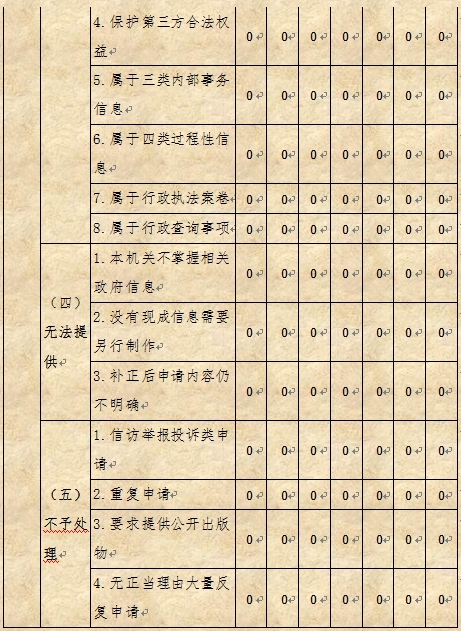 4.保护第三方合法权益 0 0 0 0 0 0 0
5.属于三类内部事务信息 0 0 0 0 0 0 0
6.属于四类过程性信息 0 0 0 0 0 0 0
7.属于行政执法案卷 0 0 0 0 0 0 0
8.属于行政查询事项 0 0 0 0 0 0 0
（四）无法提供
1.本机关不掌握相关政府信息 0 0 0 0 0 0 0
2.没有现成信息需要另行制作 0 0 0 0 0 0 0
3.补正后申请内容仍不明确 0 0 0 0 0 0 0
（五）不予处理
1.信访举报投诉类申请 0 0 0 0 0 0 0
2.重复申请 0 0 0 0 0 0 0
3.要求提供公开出版物 0 0 0 0 0 0 0
4.无正当理由大量反复申请 0 0 0 0 0 0 0